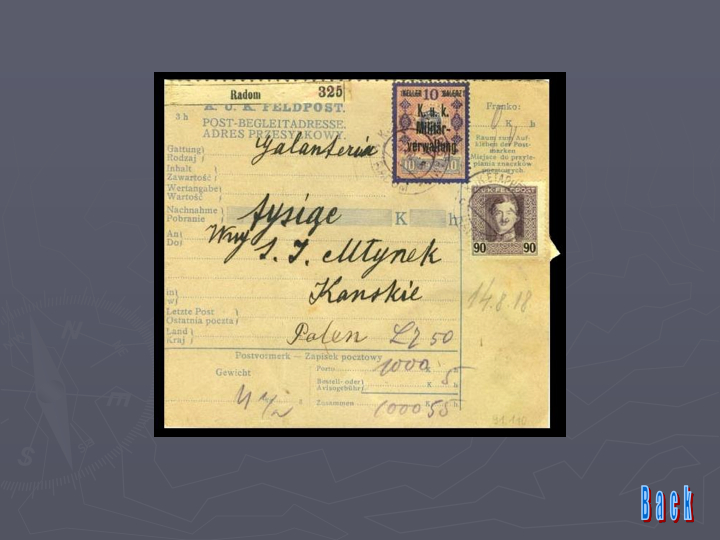 Radom 325
K. U. K. FELDPOST.
POST-BEGLEITADRESSE.
ADRES PRZESYŁKOWY.
3 h
HELLER 10 HALERZY
K. u. k.
Militär-
verwaltung
Franko:
K h
Raum zum Auf-
kleben der Post-
marken
Miejsce do przyle-
piania znaczków
pocztowych
Gattung
Rodzaj
Galanteria
Inhalt
Zawartość
Wertangabe
Wartość
Nachnahme
Pobranie
tysiąc
K h
K.U.K. FELDPOST
90 90
An
Do
Wny S. I. Młynek
in
w
Kanskie
14.8.18
Letzte Post
Ostatnia poczta
Land
Kraj
Polen 50
Postvormerk — Zapisek pocztowy
Gewicht
Porto 1000 5
Bestell- oder
Avisogebühr K h
Zusammen 1000 55 K h
Back